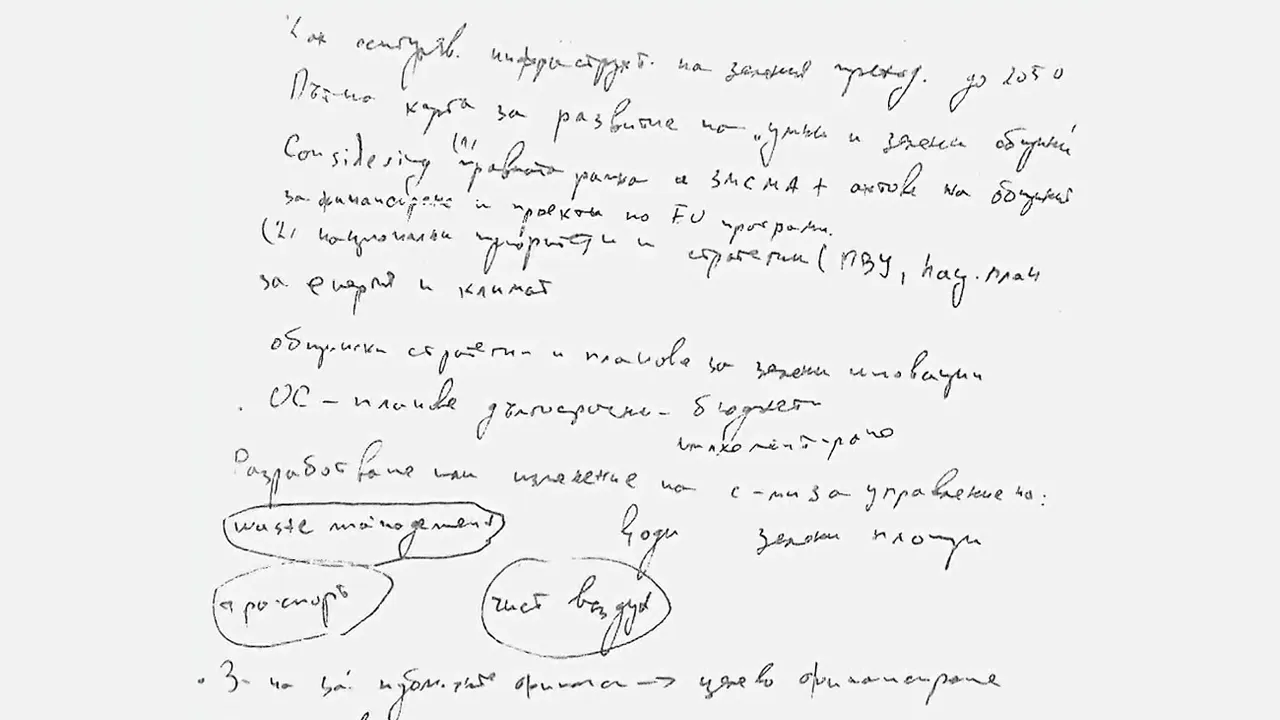 Как осигуряв. инфраструкт. на зеления преход. до 2050
Пътна карта за развитие на "умни и зелени общини"
Considering (1) правната рамка а ЗМСМА + актове на общинй
за финансиране и проекти по EU програми.
(2) национални приоритети и стратегии (ПВУ, нац. план
за енергия и климат
общински стратегии и планове за зелени иновации
. ОС - планове дългосрочни - бюджети
Разработване или изменение на с-ми за управление на:
waste management води зелени площи
транспорт чист въздух
. З-на за публичните финанси → целево финансиране